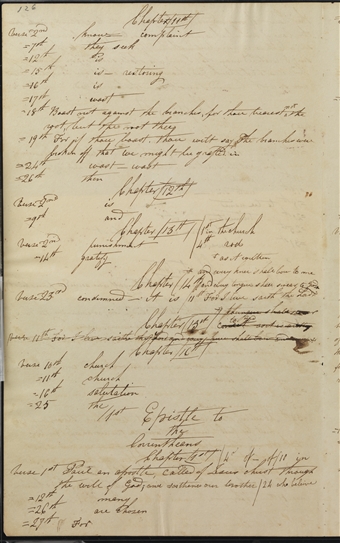 126
Chapter 11th
Verse 2nd know — complaint
=7th they seek
=12th is
=15th is — restoring
=16th is "
=17th wast —
=18th Boast not against the branches, for thou bearest not the
root, but the root thee
=19th For if thou boast, thou wilt say, the branches were
broken off that we might be grafted in
=24th wast — wast
=26th then
Chapter 12th
Verse 2nd is
=9th and
Chapter 13th 1st in the church
Verse 2nd punishment 4th rod
=14th gratify
Chapter 14
Verse 23rd condemned — it is 11th For I live saith the Lord
Chapter 15th
Verse 11th For I live saith the
Chapter 16th
Verse 10th church
=11th church
=16th salutation
=25 the
1st Epistle to
the
Corinthians
Chapter 1st
Verse 1st Paul an apostle called of Jesus christ through
the will of God; and sosthenes our brother
=12th many
=26th are chosen
=27th For